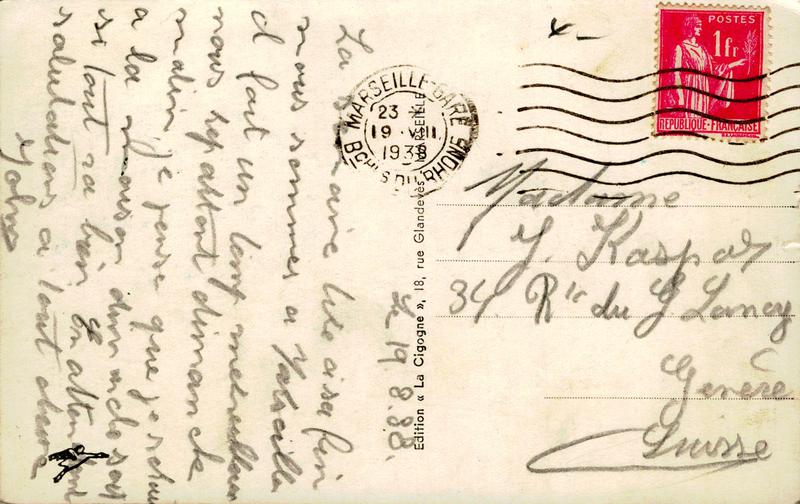 La semaine tire a sa fin
nous sommes a Marseille
il fait un temps merveilleux
nous repartons dimanche
matin je pense que je serai
a la maison dimanche soir
si tout va bien En attendant
salutations a tout
John
le 19.8.38.
MARSEILLE-GARE
23
19 · VIII
1938
BCHES DU RHONE
POSTES
1fr
REPUBLIQUE-FRANÇAISE
Madame
J. Kaspar
34. Rte du G Lancy
Genève
Suisse
Edition « La Cigogne », 18, rue Glandevès, MARSEILLE